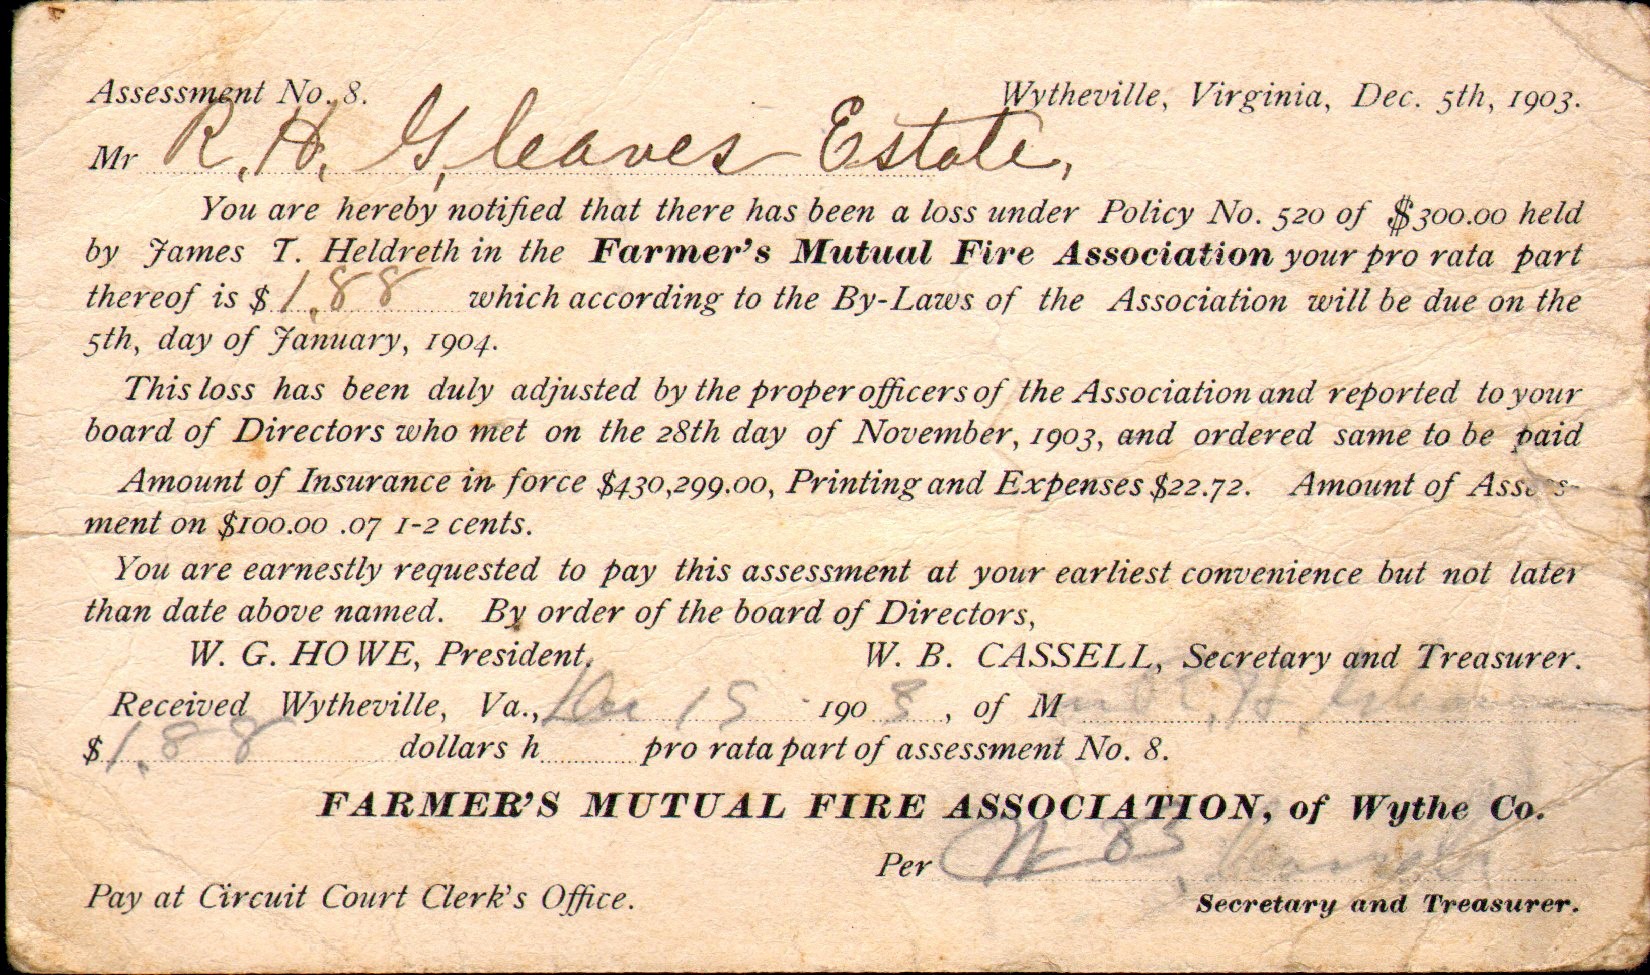 Assessment No. 8. Wytheville, Virginia, Dec. 5th, 1903.
Mr R. H. Gleaves Estate,
You are hereby notified that there has been a loss under Policy No. 520 of $300.00 held
by James T. Heldreth in the Farmer's Mutual Fire Association your pro rata part
thereof is $ 1.88 which according to the By-Laws of the Association will be due on the
5th, day of January, 1904.
This loss has been duly adjusted by the proper officers of the Association and reported to your
board of Directors who met on the 28th day of November, 1903, and ordered same to be paid
Amount of Insurance in force $430,299.00, Printing and Expenses $22.72. Amount of Assess-
ment on $100.00 .07 1-2 cents.
You are earnestly requested to pay this assessment at your earliest convenience but not later
than date above named. By order of the board of Directors,
W. G. HOWE, President, W. B. CASSELL, Secretary and Treasurer.
Received Wytheville, Va., Dec 15 190 3, of M R. H. Gleaves
$ 1.88 dollars h pro rata part of assessment No. 8.
FARMER'S MUTUAL FIRE ASSOCIATION, of Wythe Co.
Per W. B. Cassell
Pay at Circuit Court Clerk's Office. Secretary and Treasurer.